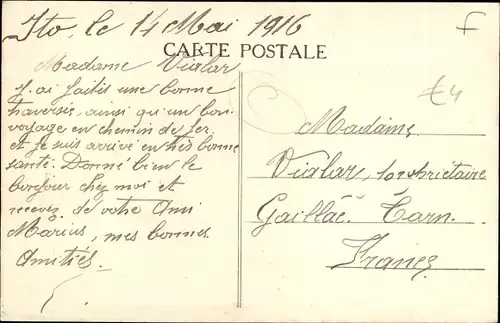 Ito, le 14 Mai 1916
F
CARTE POSTALE
Madame Vialar
J. ai faitis une bonne
traversée, ainsi qu'un bon
voyage en chemin de fer.
et je suis arrivé en très bonne
santé. Donné bien le
bonjour chez moi et
recevez de votre Ami
Marius, mes bonnes
Amitiés
€4
Madame
Vialar, propriétaire
Gaillac. Tarn.
France